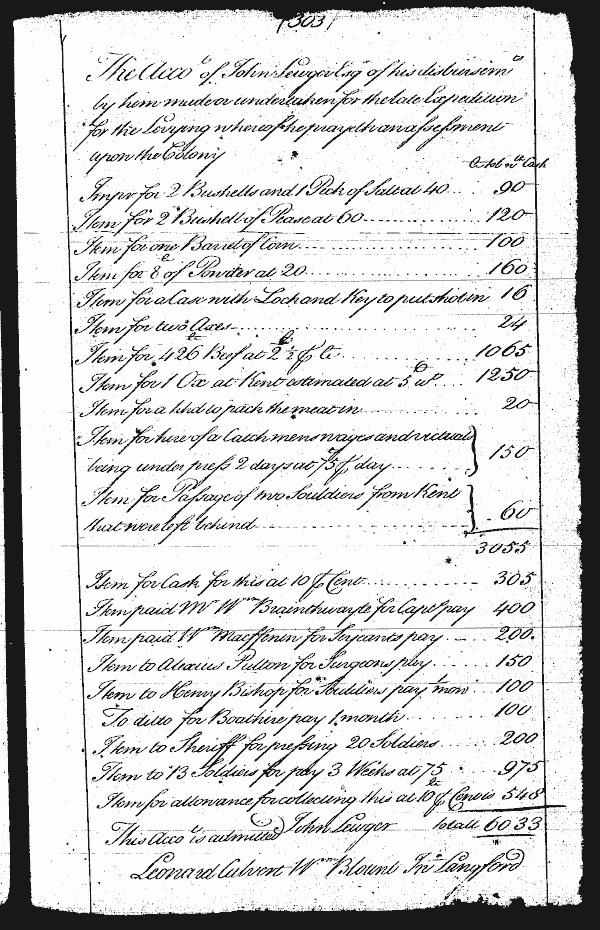 (303)
The Acco.t of John Lewger Esq.r of his disbursem.ts
by him made or undertaken for the late Expedition
for the Levying whereof he prayeth an assessment
upon the Colony
Tob. wt. Cask
Impr for 2 Bushells and 1 Peck of Salt at 40 .. 90
Item for 2 Bushell of Pease at 60 .......... 120
Item for one Barrel of Corn ............ 100
Item for 8 lb of Powder at 20 .......... 160
Item for a Case with Lock and Key to put shot in 16
Item for two Axes ............ 24
Item for 426 lb Beef at 2 1/2 lb ℔ lb ...... 1065
Item for 1 Ox at Kent estimated at 5 lb ... 1250
Item for a hhd to pack the meat in .......... 20
Item for hire of a Catch mens wages and victuals
being under press 2 days at 75 ℔ day ...... } 150
Item for Passage of two Souldiers from Kent
that were left behind ............ } 60
3055
Item for Cask for this at 10 ℔ Cent ...... 305
Item paid Mr Wm Brainthwayte for Capt pay 400
Item paid Wm Macffenin for Serjeants pay ... 200.
Item to Alexius Pulton for Surgeons pay ..... 150
Item to Henry Bishop for Souldiers pay 1 mo 100
To ditto for Boathire pay 1 month ...... 100
Item to Sheriff for pressing 20 Soldiers ..... 200
Item to 13 Soldiers for pay 3 Weeks at 75 .... 975
Item for allowance for collecting this at 10 lb ℔ Cent is 548
This Acco.t is admitted John Lewger totall 6033
Leonard Calvert Wm Blount Jno Langford